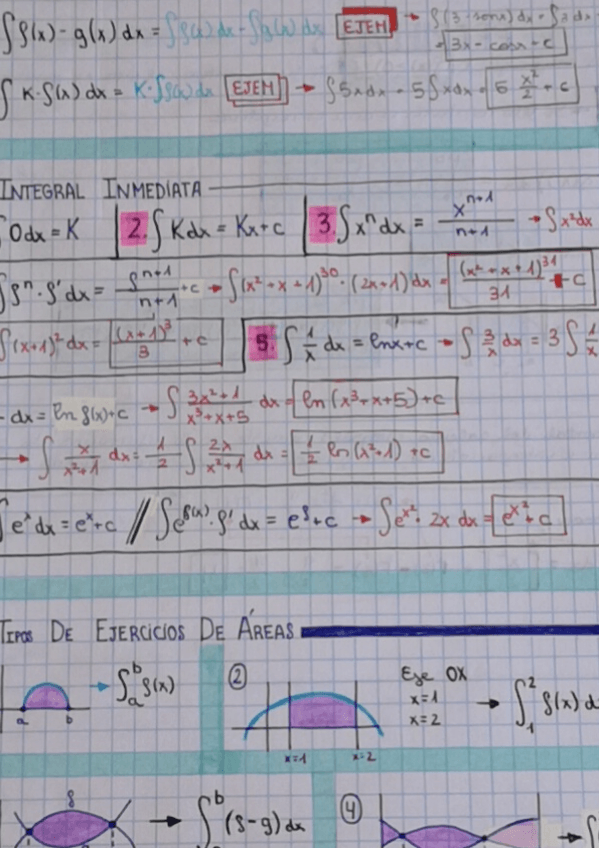 ∫f(x) - g(x) dx = ∫f(x) dx - ∫g(x) dx EJEM → ∫(3 - senx) dx = ∫3 dx -
= 3x - cosx - c
∫ K·f(x) dx = K·∫f(x) dx EJEM → ∫5x dx = 5∫x dx = 5 x²/2 + c
INTEGRAL INMEDIATA
∫0dx = K 2. ∫Kdx = Kx+c 3. ∫xⁿ dx = xⁿ⁺¹/n+1 → ∫x²dx
∫fⁿ·f' dx = fⁿ⁺¹/n+1 + c → ∫(x²+x+1)³⁰·(2x+1) dx = (x²+x+1)³¹/31 + c
∫(x+1)² dx = (x+1)³/3 + c 5. ∫ 1/x dx = lnx+c → ∫ 3/x dx = 3 ∫ 1/x
dx = ln f(x)+c → ∫ 3x²+1/x³+x+5 dx = ln(x³+x+5)+c
→ ∫ x/x²+1 dx = 1/2 ∫ 2x/x²+1 dx = 1/2 ln(x²+1) + c
∫eˣ dx = eˣ+c // ∫e^f(x)·f' dx = e^f+c → ∫e^x²·2x dx = e^x²+c
TIPOS DE EJERCICIOS DE ÁREAS
a b → ∫ₐᵇ f(x)
② x=1 x=2
Eje OX
x=1
x=2
→ ∫₁² f(x) d
f → ∫ᵇ (f-g) dx
④ → ∫